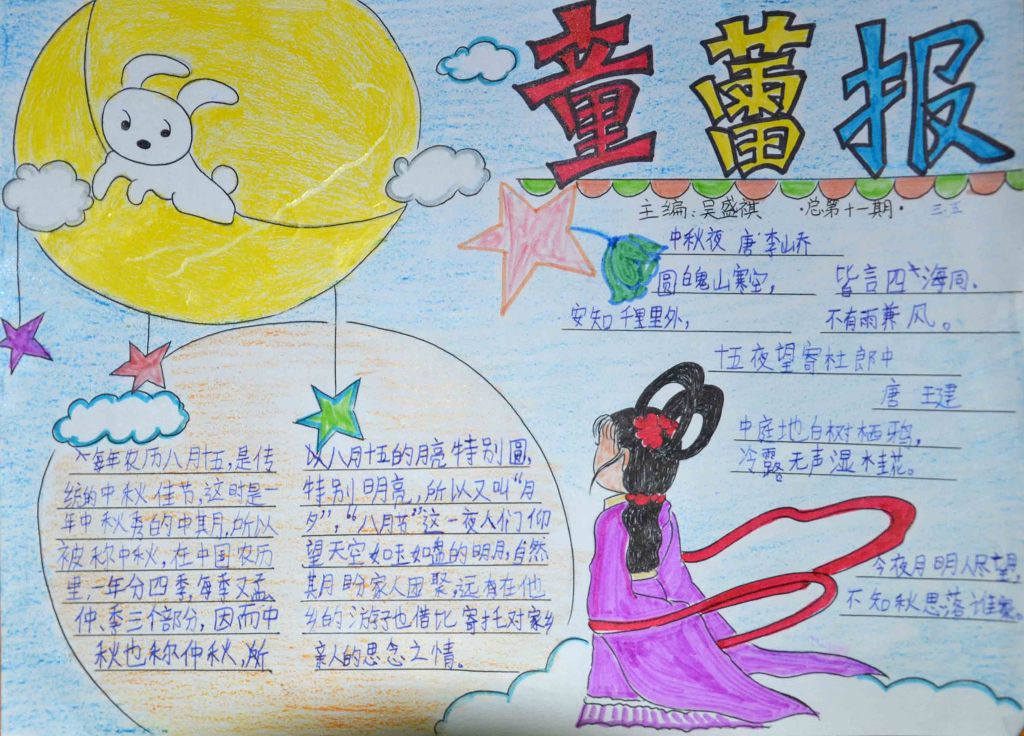 童蕾报
主编:吴盛祺 ·总第十一期· 三.五
中秋夜 唐·李峤
圆魄山寒空, 皆言四海同.
安知千里里外, 不有雨兼风。
十五夜望寄杜郎中
唐 王建
中庭地白树栖鸦,
冷露无声湿桂花。
今夜月明人尽望,
不知秋思落谁家。
每年农历八月十五,是传
统的中秋佳节,这时是一
年中秋秀的中其月,所以
被称中秋,在中国农历
里,一年分四季,每季又孟、
仲、季三个部分,因而中
秋也称仲秋,所
以八月十五的月亮特别圆,
特别明亮,所以又叫“月
夕”,“八月节”这一夜人们仰
望天空如玉如盘的明月,自然
其月盼家人团聚,远有在他
乡的游子也借比寄托对家乡
亲人的思念之情。